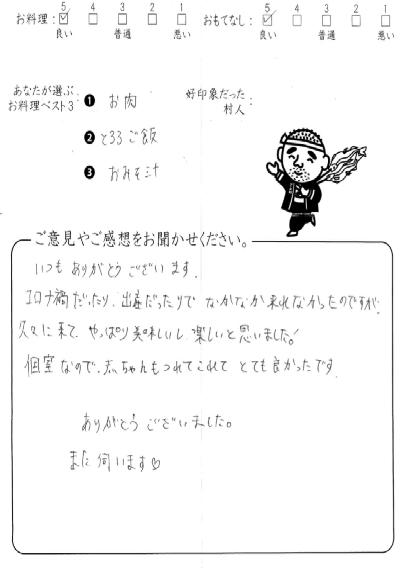 5 4 3 2 1 5 4 3 2 1
お料理: ☑ □ □ □ □ おもてなし: ☑ □ □ □ □
良い 普通 悪い 良い 普通 悪い
あなたが選ぶ、
お料理ベスト3:
❶ お肉
❷ とろろご飯
❸ おみそ汁
好印象だった
村人:
ご意見やご感想をお聞かせください。
いつもありがとうございます。
コロナ禍だったり、出産だったりで なかなか来れなかったのですが、
久々に来て、やっぱり美味しいし、楽しいと思いました!
個室なので、赤ちゃんもつれてこれて とても良かったです。
ありがとうございました。
また伺います♡